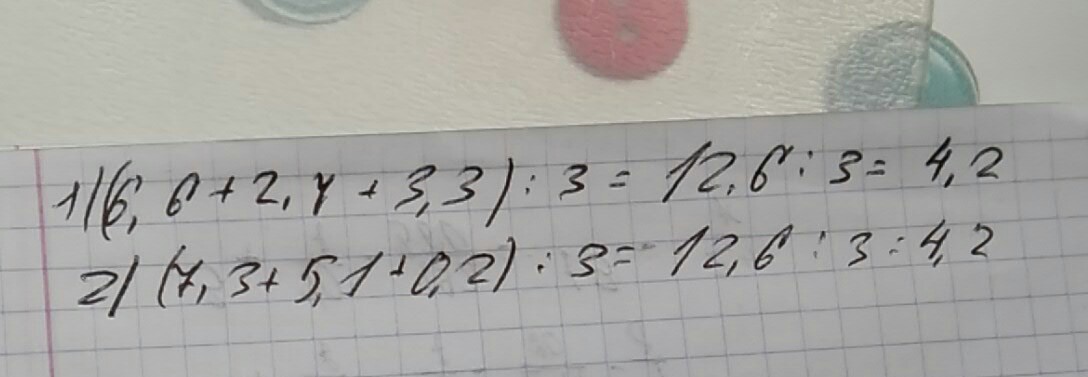 1) (6,6 + 2,7 + 3,3) : 3 = 12,6 : 3 = 4,2
2) (7,3 + 5,1 + 0,2) : 3 = 12,6 : 3 = 4,2